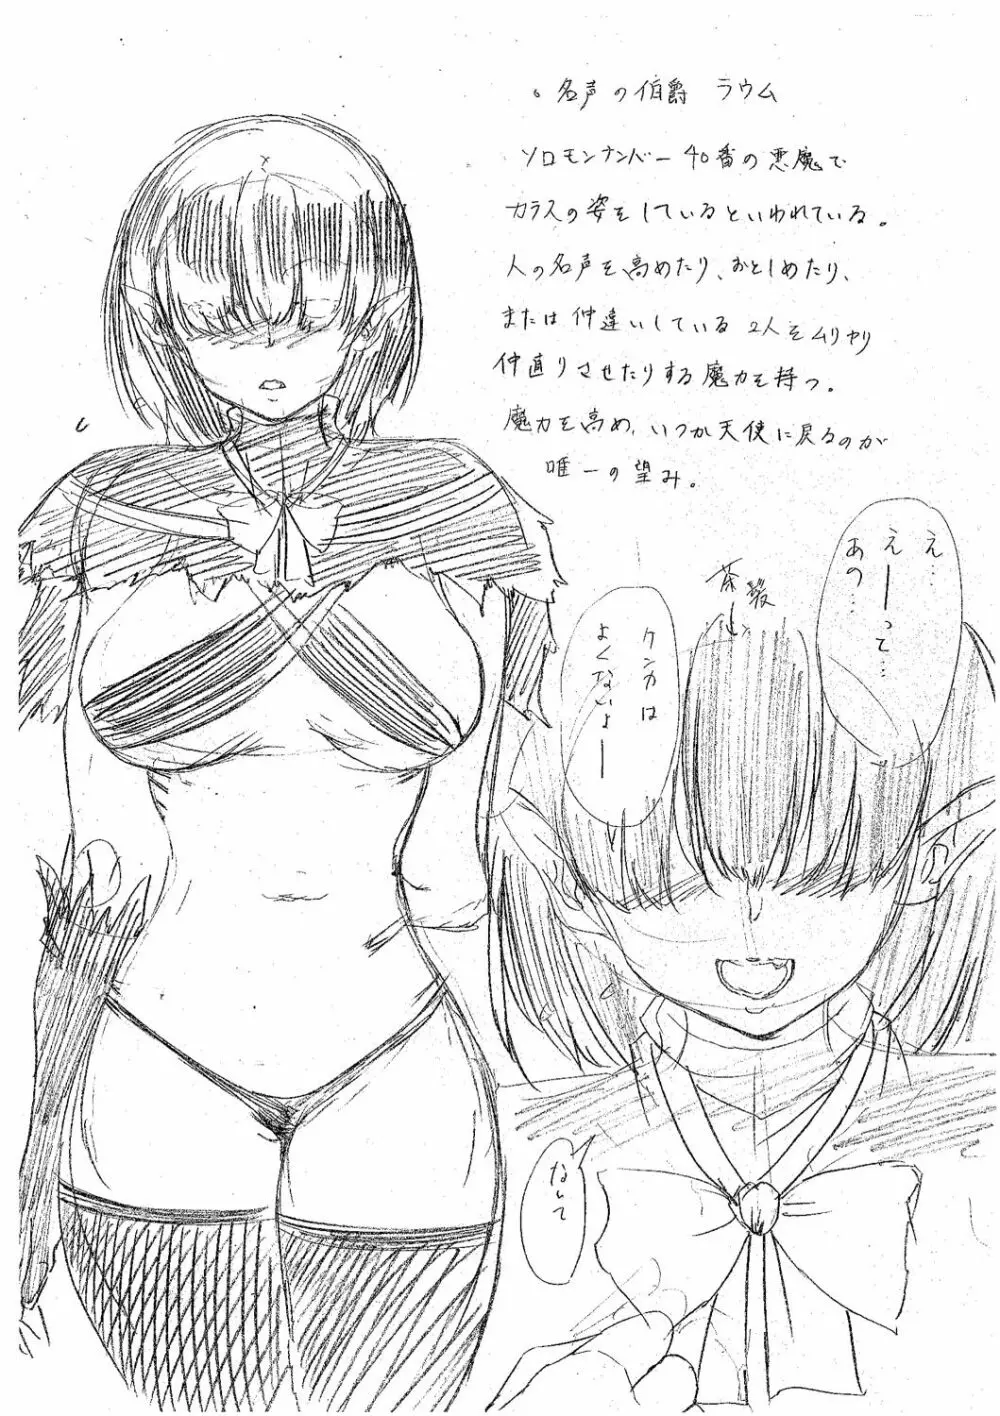 名声の伯爵 ラウム
ソロモンナンバー40番の悪魔で
カラスの姿をしているといわれている。
人の名声を高めたり、おとしめたり、
または仲違いしている2人をムリヤリ
仲直りさせたりする魔力を持つ。
魔力を高め、いつか天使に戻るのが
唯一の望み。
え…
えーって…
あの…
茶髪
ケンカは
よくないよー
なして